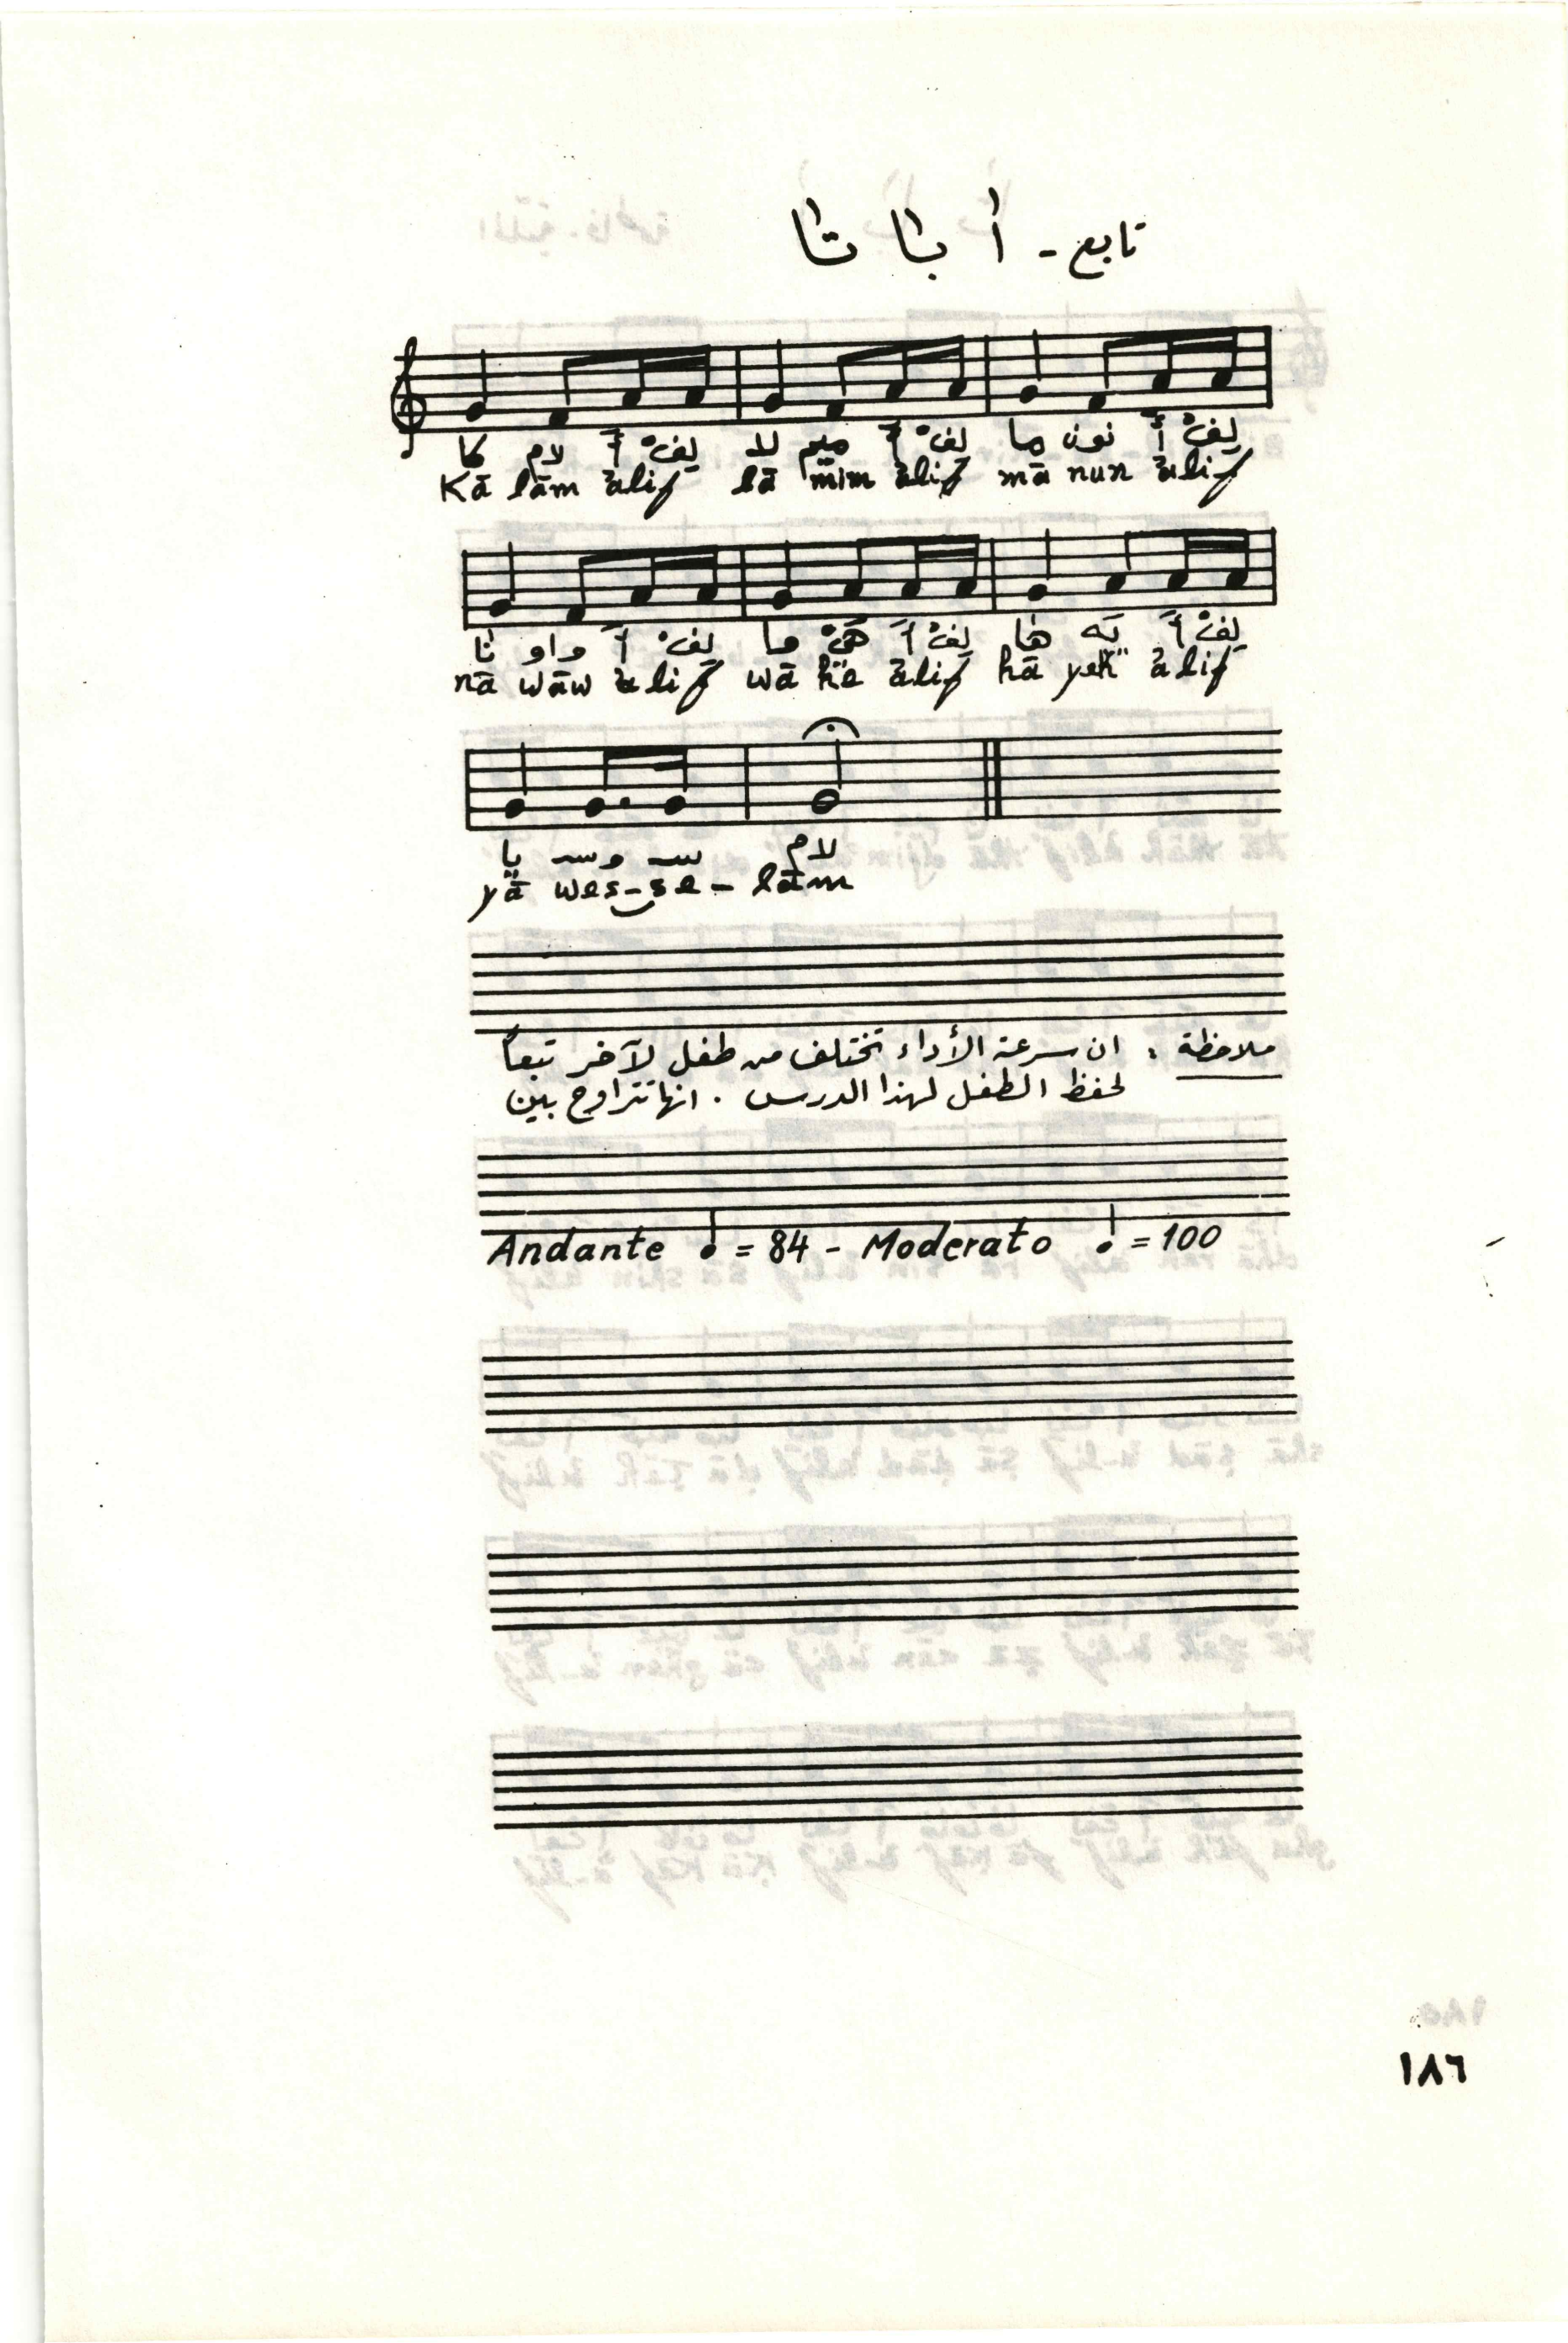 تابع - أ باَ تاَ
كا لام أَ لِفْ لا ميم أَ لِفْ ما نون أَ لِفْ
Kā lām àlif lā mīm àlif mā nun àlif
نا واو أَ لِفْ وا هَيْ أَ لِفْ ها يَه أَ لِفْ
nā wāw àlif wā he àlif hā yeh àlif
يا وسـ سـ لام
yā wes-se-lām
ملاحظة : ان سرعة الأداء تختلف من طفل لآخر تبعاً
لحفظ الطفل لهذا الدرس . انها تتراوح بين
Andante ♩ = 84 - Moderato ♩ = 100
١٨٦